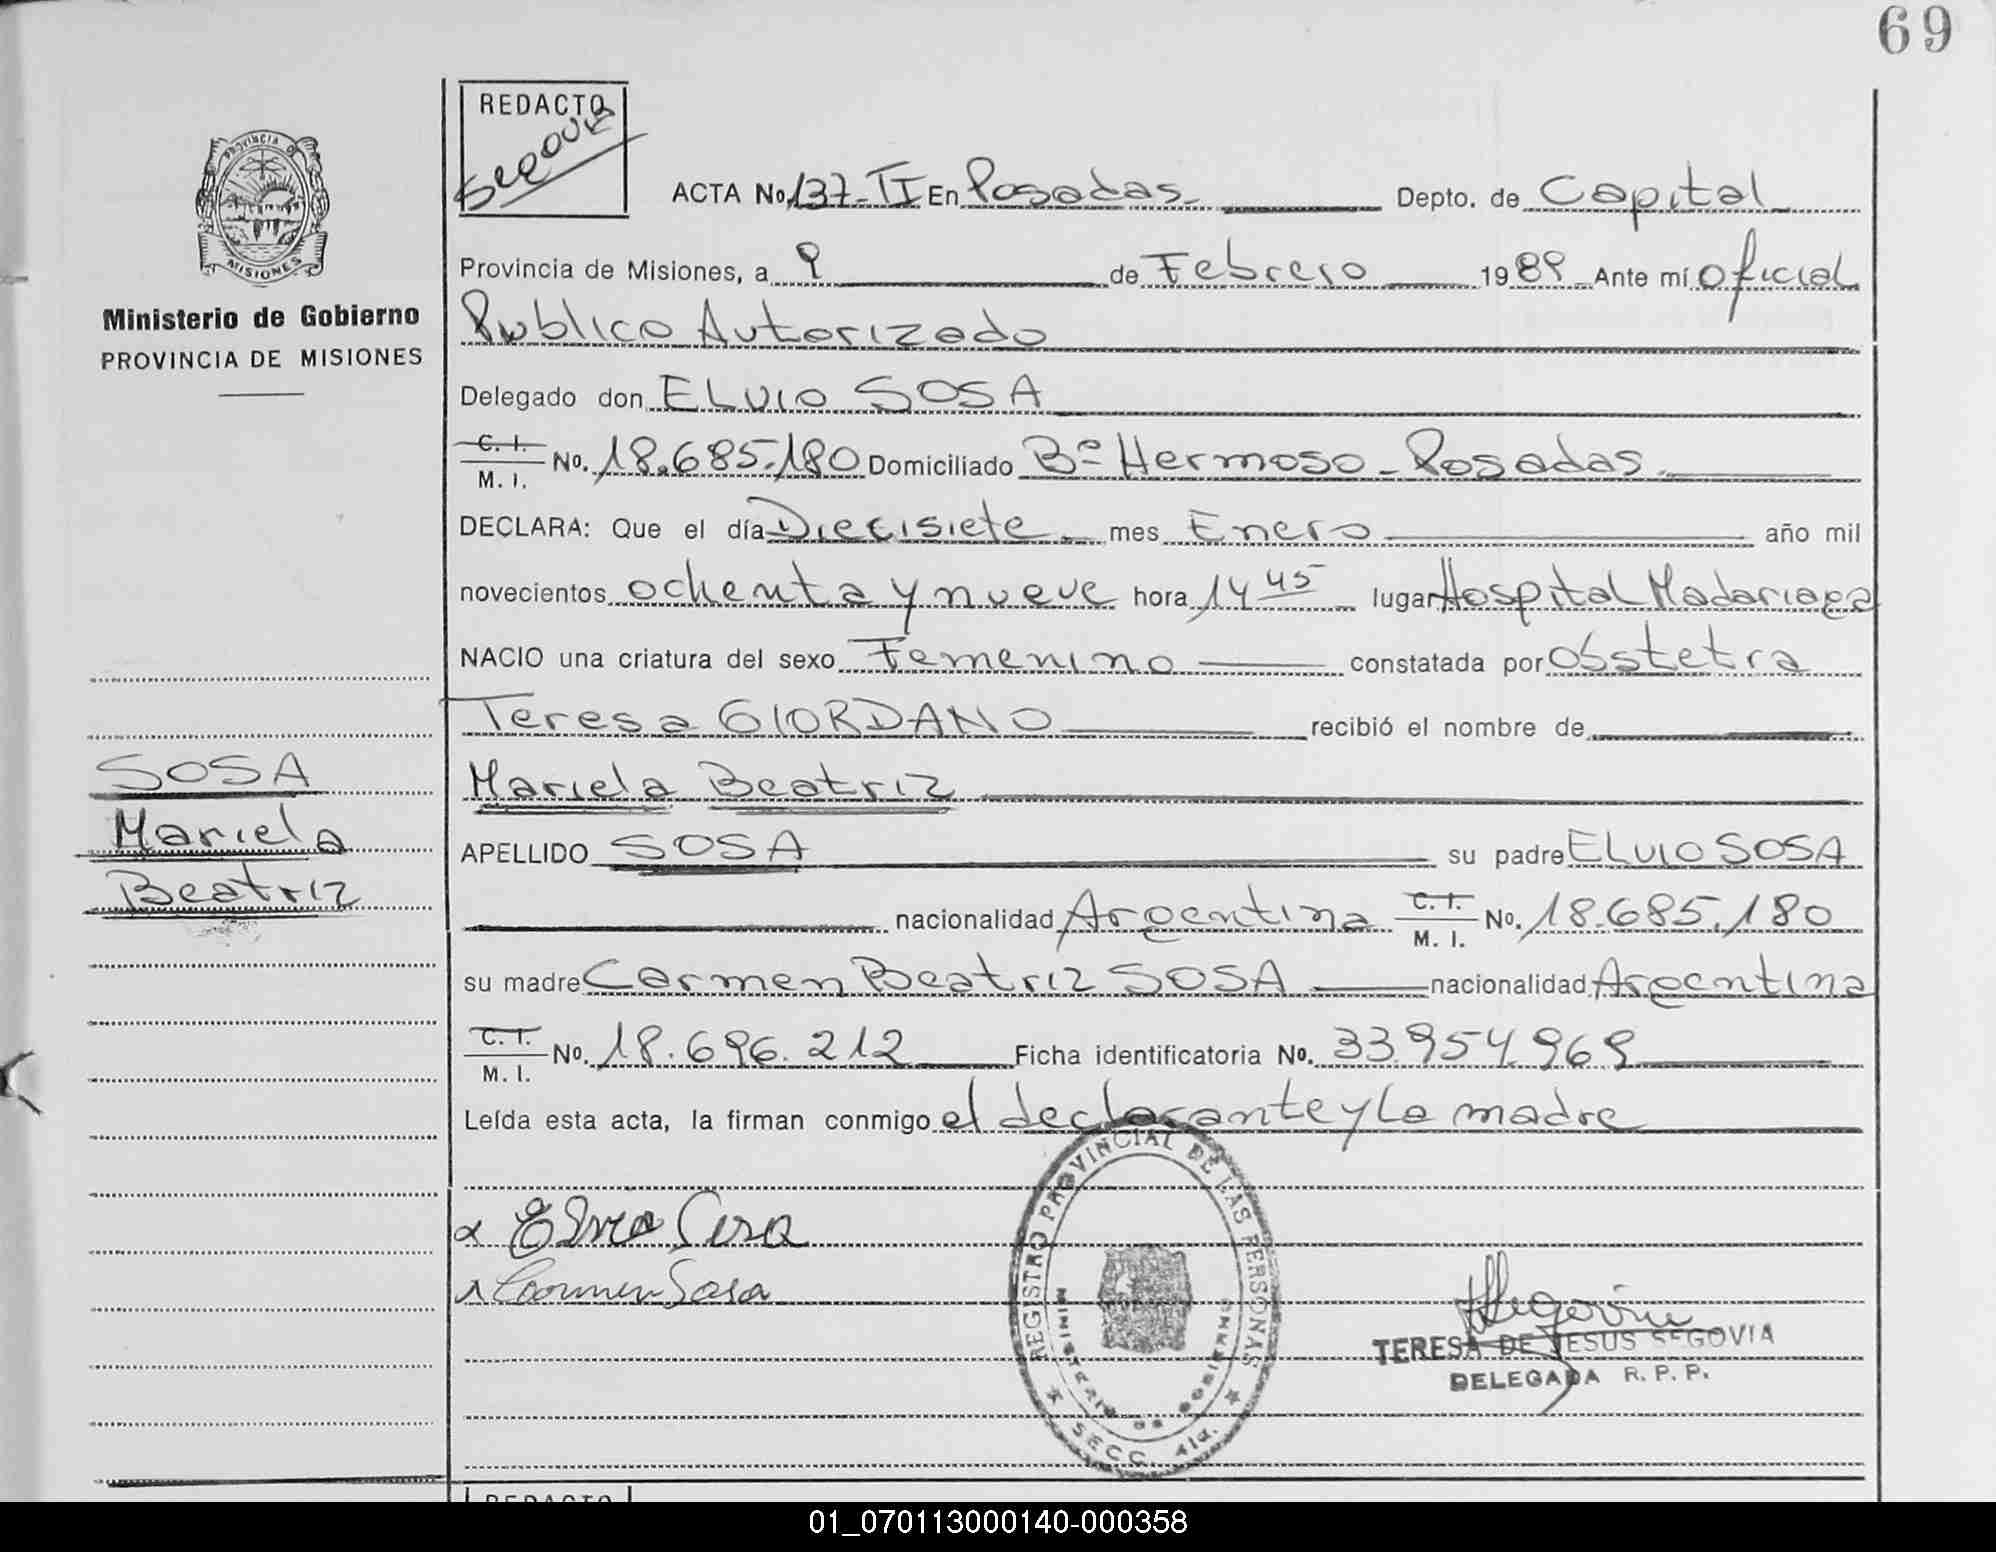 69
REDACTO
Segovia
Provincia de
MISIONES
Ministerio de Gobierno
PROVINCIA DE MISIONES
ACTA No. 137-II En Posadas Depto. de Capital
Provincia de Misiones, a 9 de Febrero 1989 Ante mí Oficial
Publico Autorizado
Delegado don ELVIO SOSA
C. I. / M. I. No. 18.685.180 Domiciliado Bº Hermoso - Posadas
DECLARA: Que el día Diecisiete mes Enero año mil
novecientos ochenta y nueve hora 14 45 lugar Hospital Madariaga
NACIO una criatura del sexo Femenino constatada por Obstetra
Teresa GIORDANO recibió el nombre de
SOSA
Mariela
Beatriz
Mariela Beatriz
APELLIDO SOSA su padre ELVIO SOSA
nacionalidad Argentina C. I. / M. I. No. 18.685.180
su madre Carmen Beatriz SOSA nacionalidad Argentina
C. I. / M. I. No. 18.696.212 Ficha identificatoria No. 33.954.969
Leída esta acta, la firman conmigo el declarante y la madre
Elvio Sosa
Carmen Sosa
REGISTRO PROVINCIAL DE LAS PERSONAS
MINISTERIO DE GOBIERNO
SECC. 4ta.
Segovia
TERESA DE JESUS SEGOVIA
DELEGADA R. P. P.
REDACTO
01_070113000140-000358